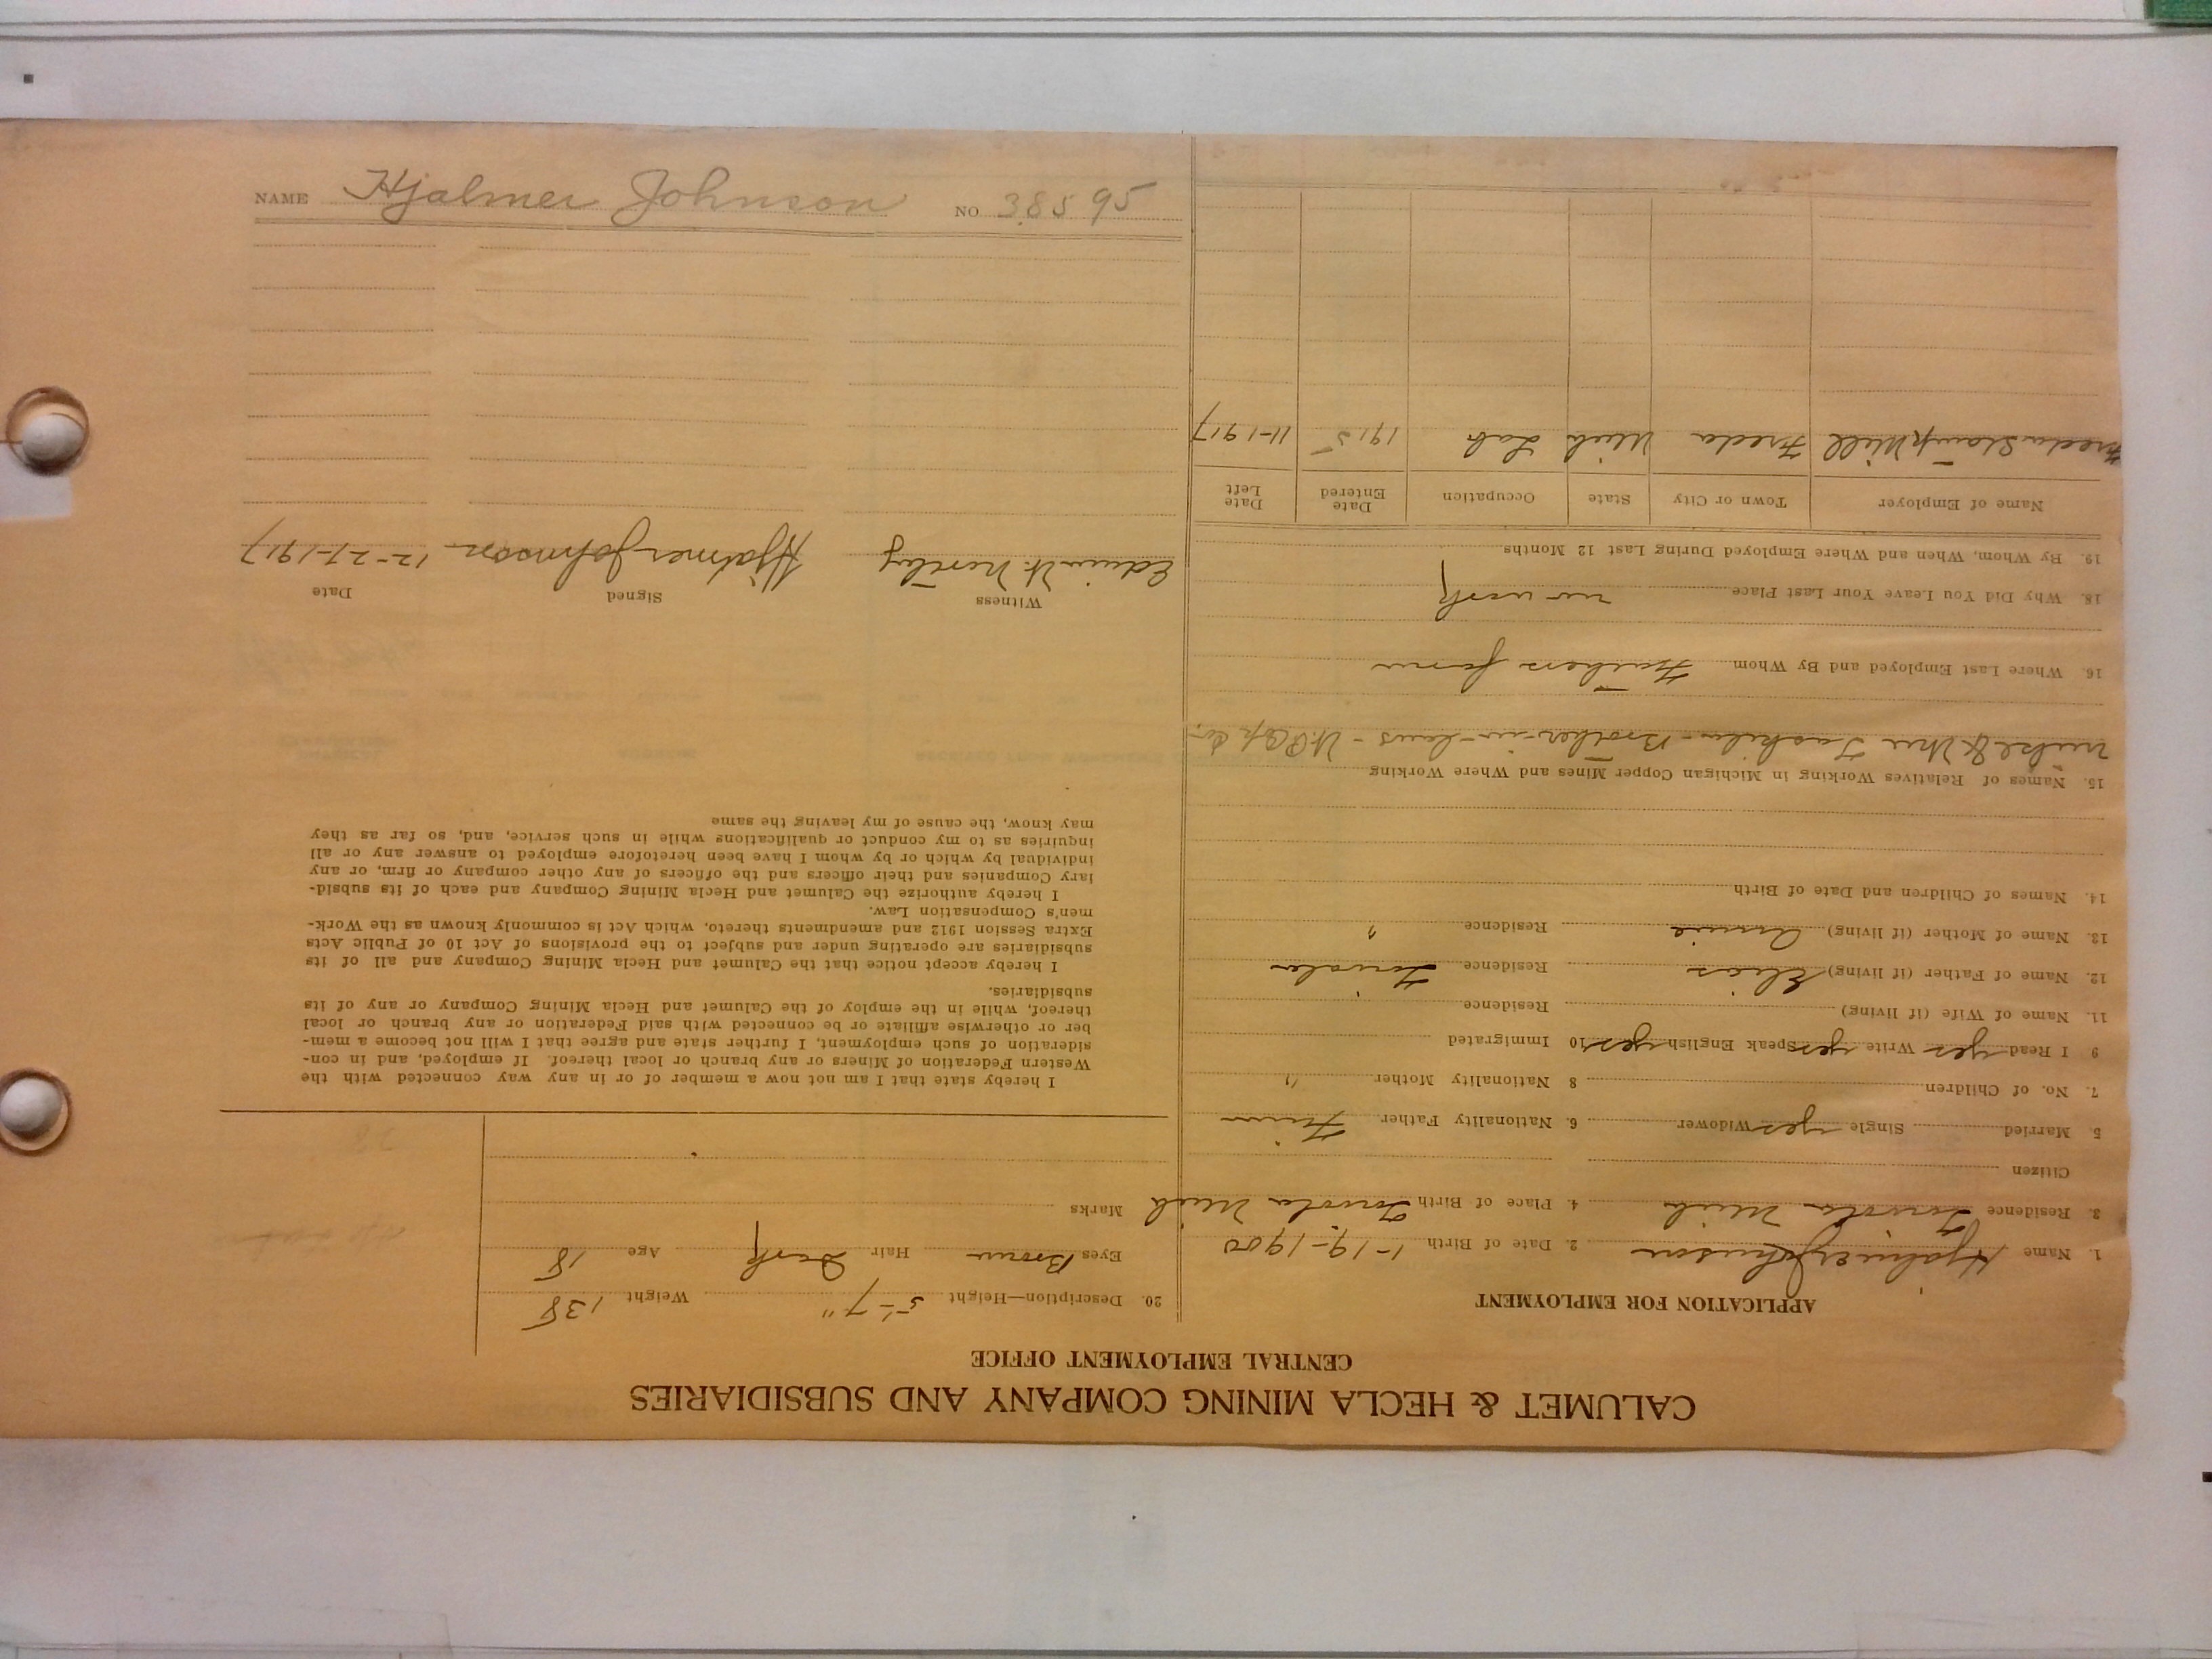 CALUMET & HECLA MINING COMPANY AND SUBSIDIARIES
CENTRAL EMPLOYMENT OFFICE
APPLICATION FOR EMPLOYMENT
1. Name Hjalmer Johnson 2. Date of Birth 1-19-1900
3. Residence Toivola Mich 4. Place of Birth Toivola Mich
Citizen
5. Married Single yes Widower 6. Nationality Father Finn
7. No. of Children 8 Nationality Mother "
9 I Read yes Write yes Speak English yes 10 Immigrated
11. Name of Wife (if living) Residence
12. Name of Father (if living) Elias Residence Toivola
13. Name of Mother (if living) Annie Residence "
14. Names of Children and Date of Birth
15. Names of Relatives Working in Michigan Copper Mines and Where Working
Brother-in-laws
16. Where Last Employed and By Whom Fathers farm
18. Why Did You Leave Your Last Place no work
19. By Whom, When and Where Employed During Last 12 Months
Name of Employer Town or City State Occupation Date Entered Date Left
Freda Stamp Mill Freda Mich Lab 1915 11-1917
20. Description—Height 5'-7" Weight 138
Eyes Brown Hair Dark Age 18
Marks
I hereby state that I am not now a member of or in any way connected with the
Western Federation of Miners or any branch or local thereof. If employed, and in con-
sideration of such employment, I further state and agree that I will not become a mem-
ber or otherwise affiliate or be connected with said Federation or any branch or local
thereof, while in the employ of the Calumet and Hecla Mining Company or any of its
subsidiaries.
I hereby accept notice that the Calumet and Hecla Mining Company and all of its
subsidiaries are operating under and subject to the provisions of Act 10 of Public Acts
Extra Session 1912 and amendments thereto, which Act is commonly known as the Work-
men's Compensation Law.
I hereby authorize the Calumet and Hecla Mining Company and each of its subsid-
iary Companies and their officers and the officers of any other company or firm, or any
individual by which or by whom I have been heretofore employed to answer any or all
inquiries as to my conduct or qualifications while in such service, and, so far as they
may know, the cause of my leaving the same
Witness Signed Date
Edwin Hjalmer Johnson 12-21-1917
NAME Hjalmer Johnson NO. 38595